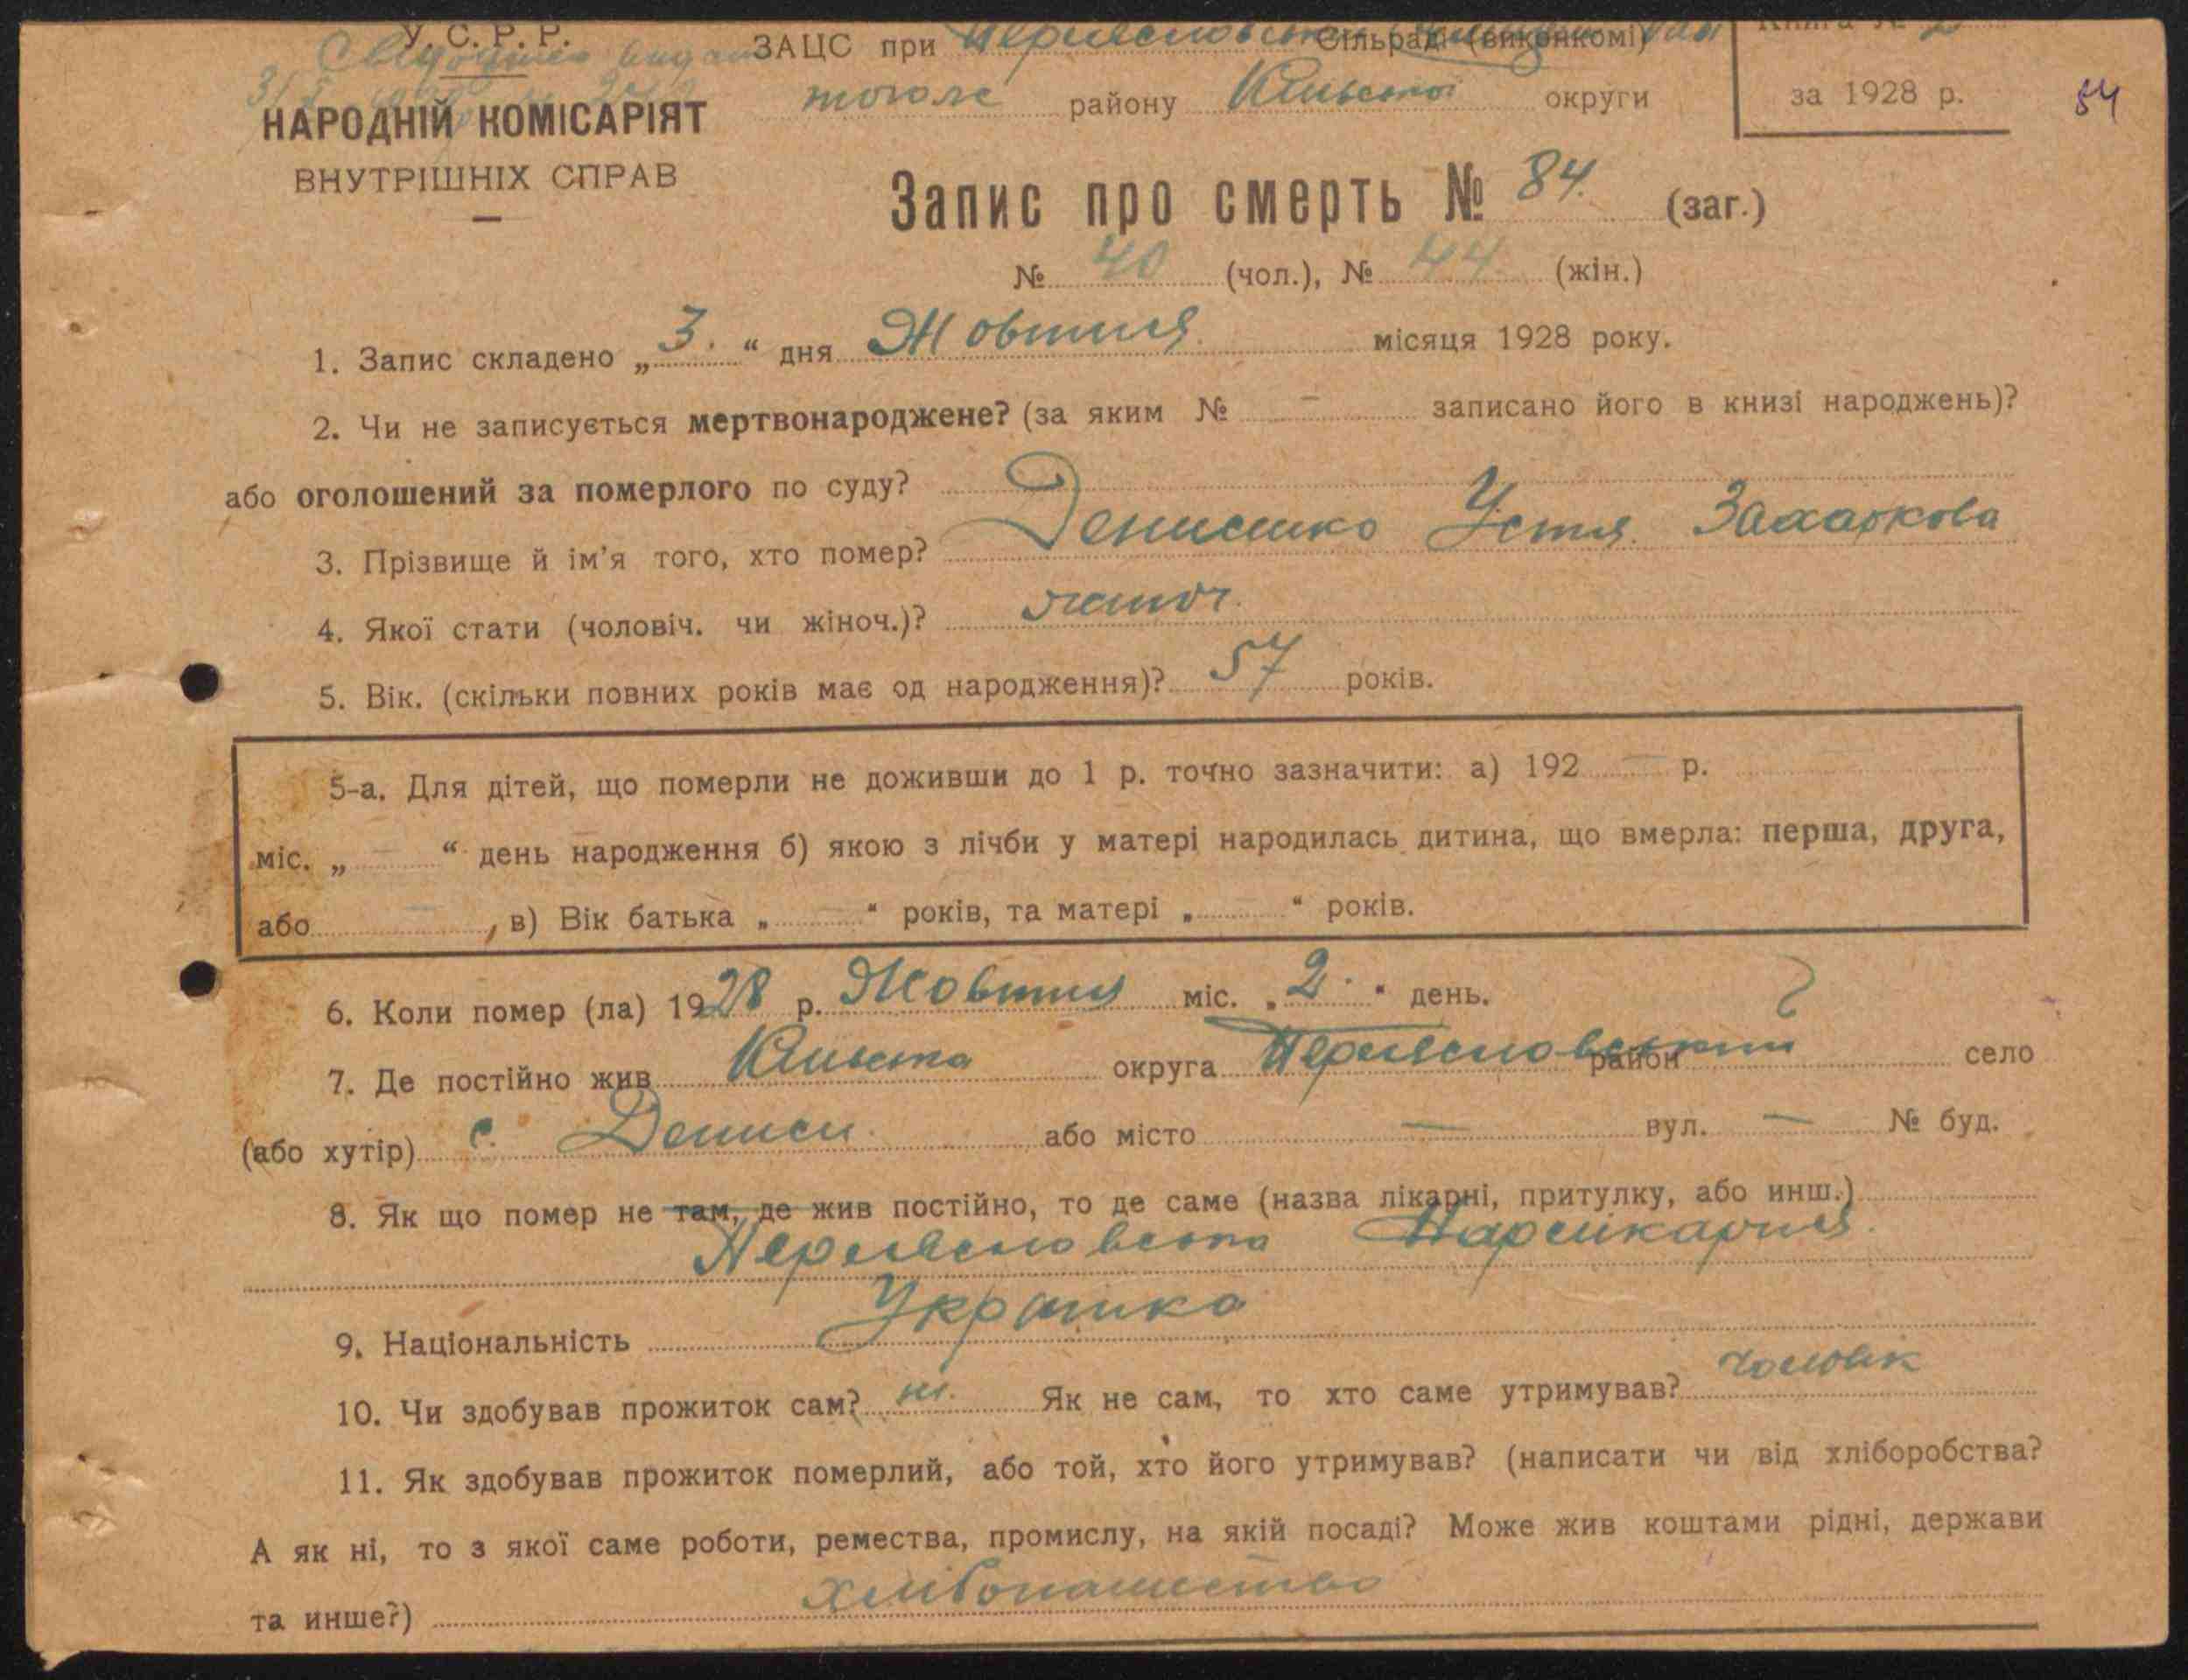 У. С. Р. Р.
ЗАЦС при Сільраді (виконкомі)
НАРОДНІЙ КОМІСАРІЯТ
ВНУТРІШНІХ СПРАВ
району Київської округи
за 1928 р.
54
Запис про смерть № 84. (заг.)
№ 40 (чол.), № 44 (жін.)
1. Запис складено „ 3. “ дня Жовтня місяця 1928 року.
2. Чи не записується мертвонароджене? (за яким № – записано його в книзі народжень)?
або оголошений за померлого по суду?
3. Прізвище й ім'я того, хто помер? Денисенко Устя Захаркова
4. Якої стати (чоловіч. чи жіноч.)? жіноч.
5. Вік. (скільки повних років має од народження)? 57 років.
5-а. Для дітей, що померли не доживши до 1 р. точно зазначити: а) 192 — р.
міс. „ — “ день народження б) якою з лічби у матері народилась дитина, що вмерла: перша, друга,
або — , в) Вік батька „ “ років, та матері „ “ років.
6. Коли помер (ла) 1928 р. Жовтня міс. „ 2. “ день.
7. Де постійно жив Київська округа Переяславський район село
(або хутір) с. Дениси. або місто — вул. — № буд.
8. Як що помер не там, де жив постійно, то де саме (назва лікарні, притулку, або инш.)
Переяславська
9. Національність Українка
10. Чи здобував прожиток сам? ні. Як не сам, то хто саме утримував? чоловік
11. Як здобував прожиток померлий, або той, хто його утримував? (написати чи від хліборобства?
А як ні, то з якої саме роботи, ремества, промислу, на якій посаді? Може жив коштами рідні, держави
та инше?) хлібопашество